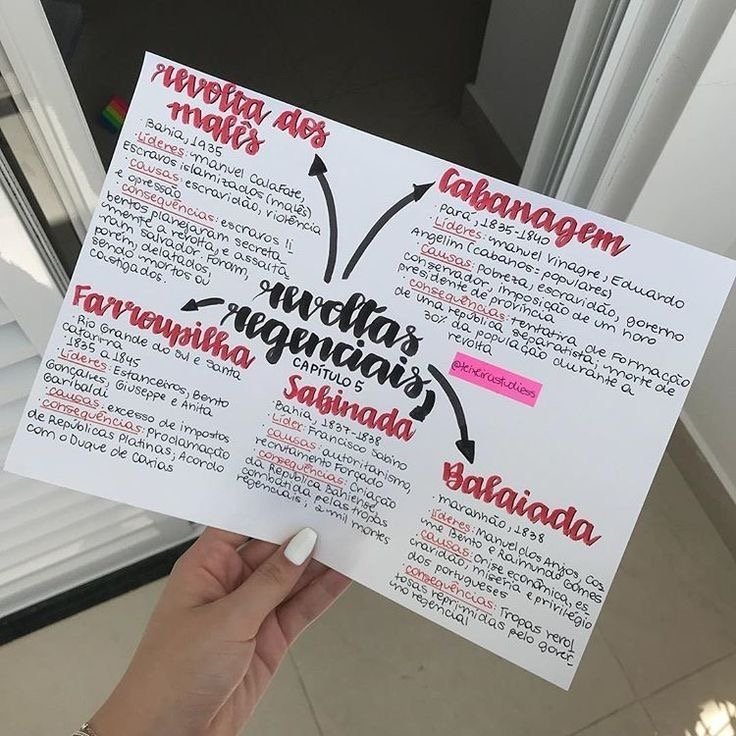 revolta dos
malês
· Bahia, 1935
· Líderes: manuel Calafate,
Escravos islamizados (malês)
· causas: escravidão, violência
e opressão
· consequências: escravos li
bertos planejaram secreta-
mente a revolta e assalta
ram Salvador. Foram,
porém, delatados,
sendo mortos ou
castigados.
Cabanagem
· Pará, 1835-1840
· Líderes: manuel Vinagre, Eduardo
Angelim (cabanos = populares)
· Causas: pobreza, escravidão, governo
conservador, imposição de um novo
presidente de província
· consequências: tentativa de Formação
de uma república separatista; morte de
30% da população durante a
revolta
revoltas
regenciais
CAPITULO 5
@teixeirastudiess
Farroupilha
· Rio Grande do Sul e Santa
catarina
· 1835 a 1845
· Líderes: Estanceiros, Bento
Gonçalves, Giuseppe e Anita
Garibardi
· causas: excesso de impostos
· consequências: Proclamação
de Repúblicas Platinas; Acordo
com o Duque de Caxias
Sabinada
· Bahia, 1837-1838
· Líder: Francisco Sabino
· causas: autoritarismo,
recrutamento Forçado
· consequências: Criação
da República Bahiense,
combatida pelas tropas
regenciais; 2 mil mortes
Balaiada
· maranhão, 1838
· Líderes: Manuel dos Anjos, cos
me Bento e Raimundo Gomes
· Causas: Crise econômica, es
cravidão, miséria e privilégio
dos portugueses
· consequências: Tropas revol
tosas reprimidas pelo gover
no regencial